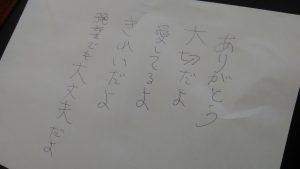 ありがとう
大切だよ
愛してるよ
きれいだよ
でも大丈夫だよ